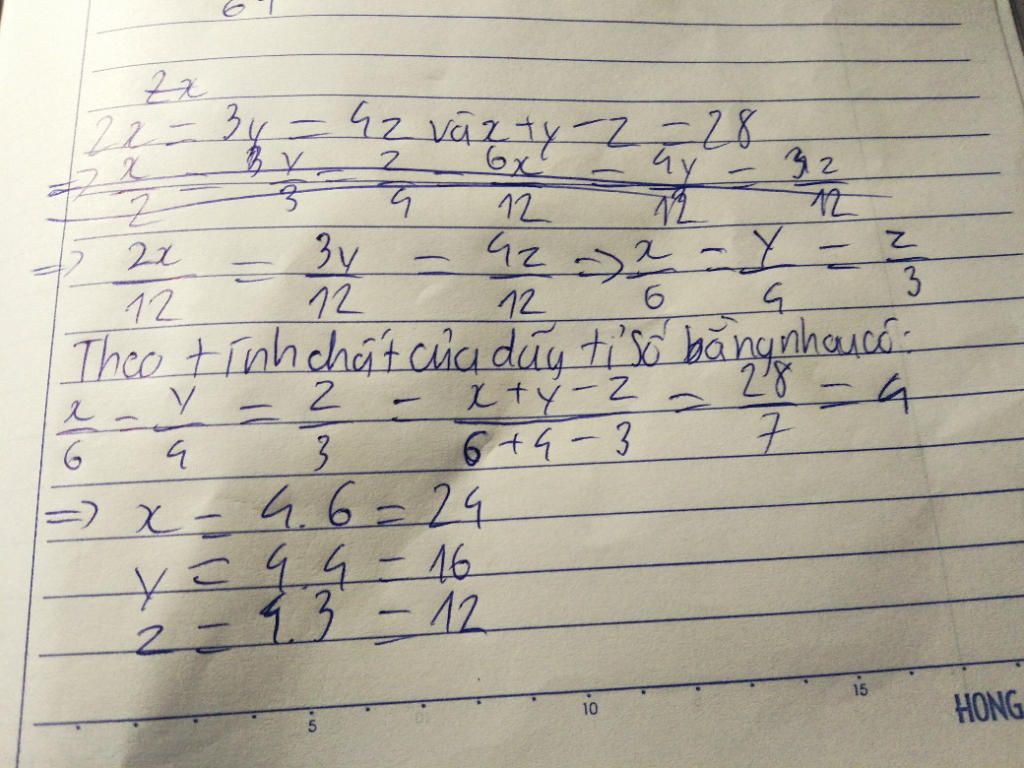 2x
2x = 3y = 4z và x + y - z = 28
=> x/2 = 3y/3 = z/4 = 6x/12 = 4y/12 = 3z/12
=> 2x/12 = 3y/12 = 4z/12 => x/6 = y/4 = z/3
Theo tính chất của dãy tỉ số bằng nhau có:
x/6 = y/4 = z/3 = x+y-z/6+4-3 = 28/7 = 4
=> x = 4.6 = 24
y = 4.4 = 16
z = 4.3 = 12
5 10 15
HONG